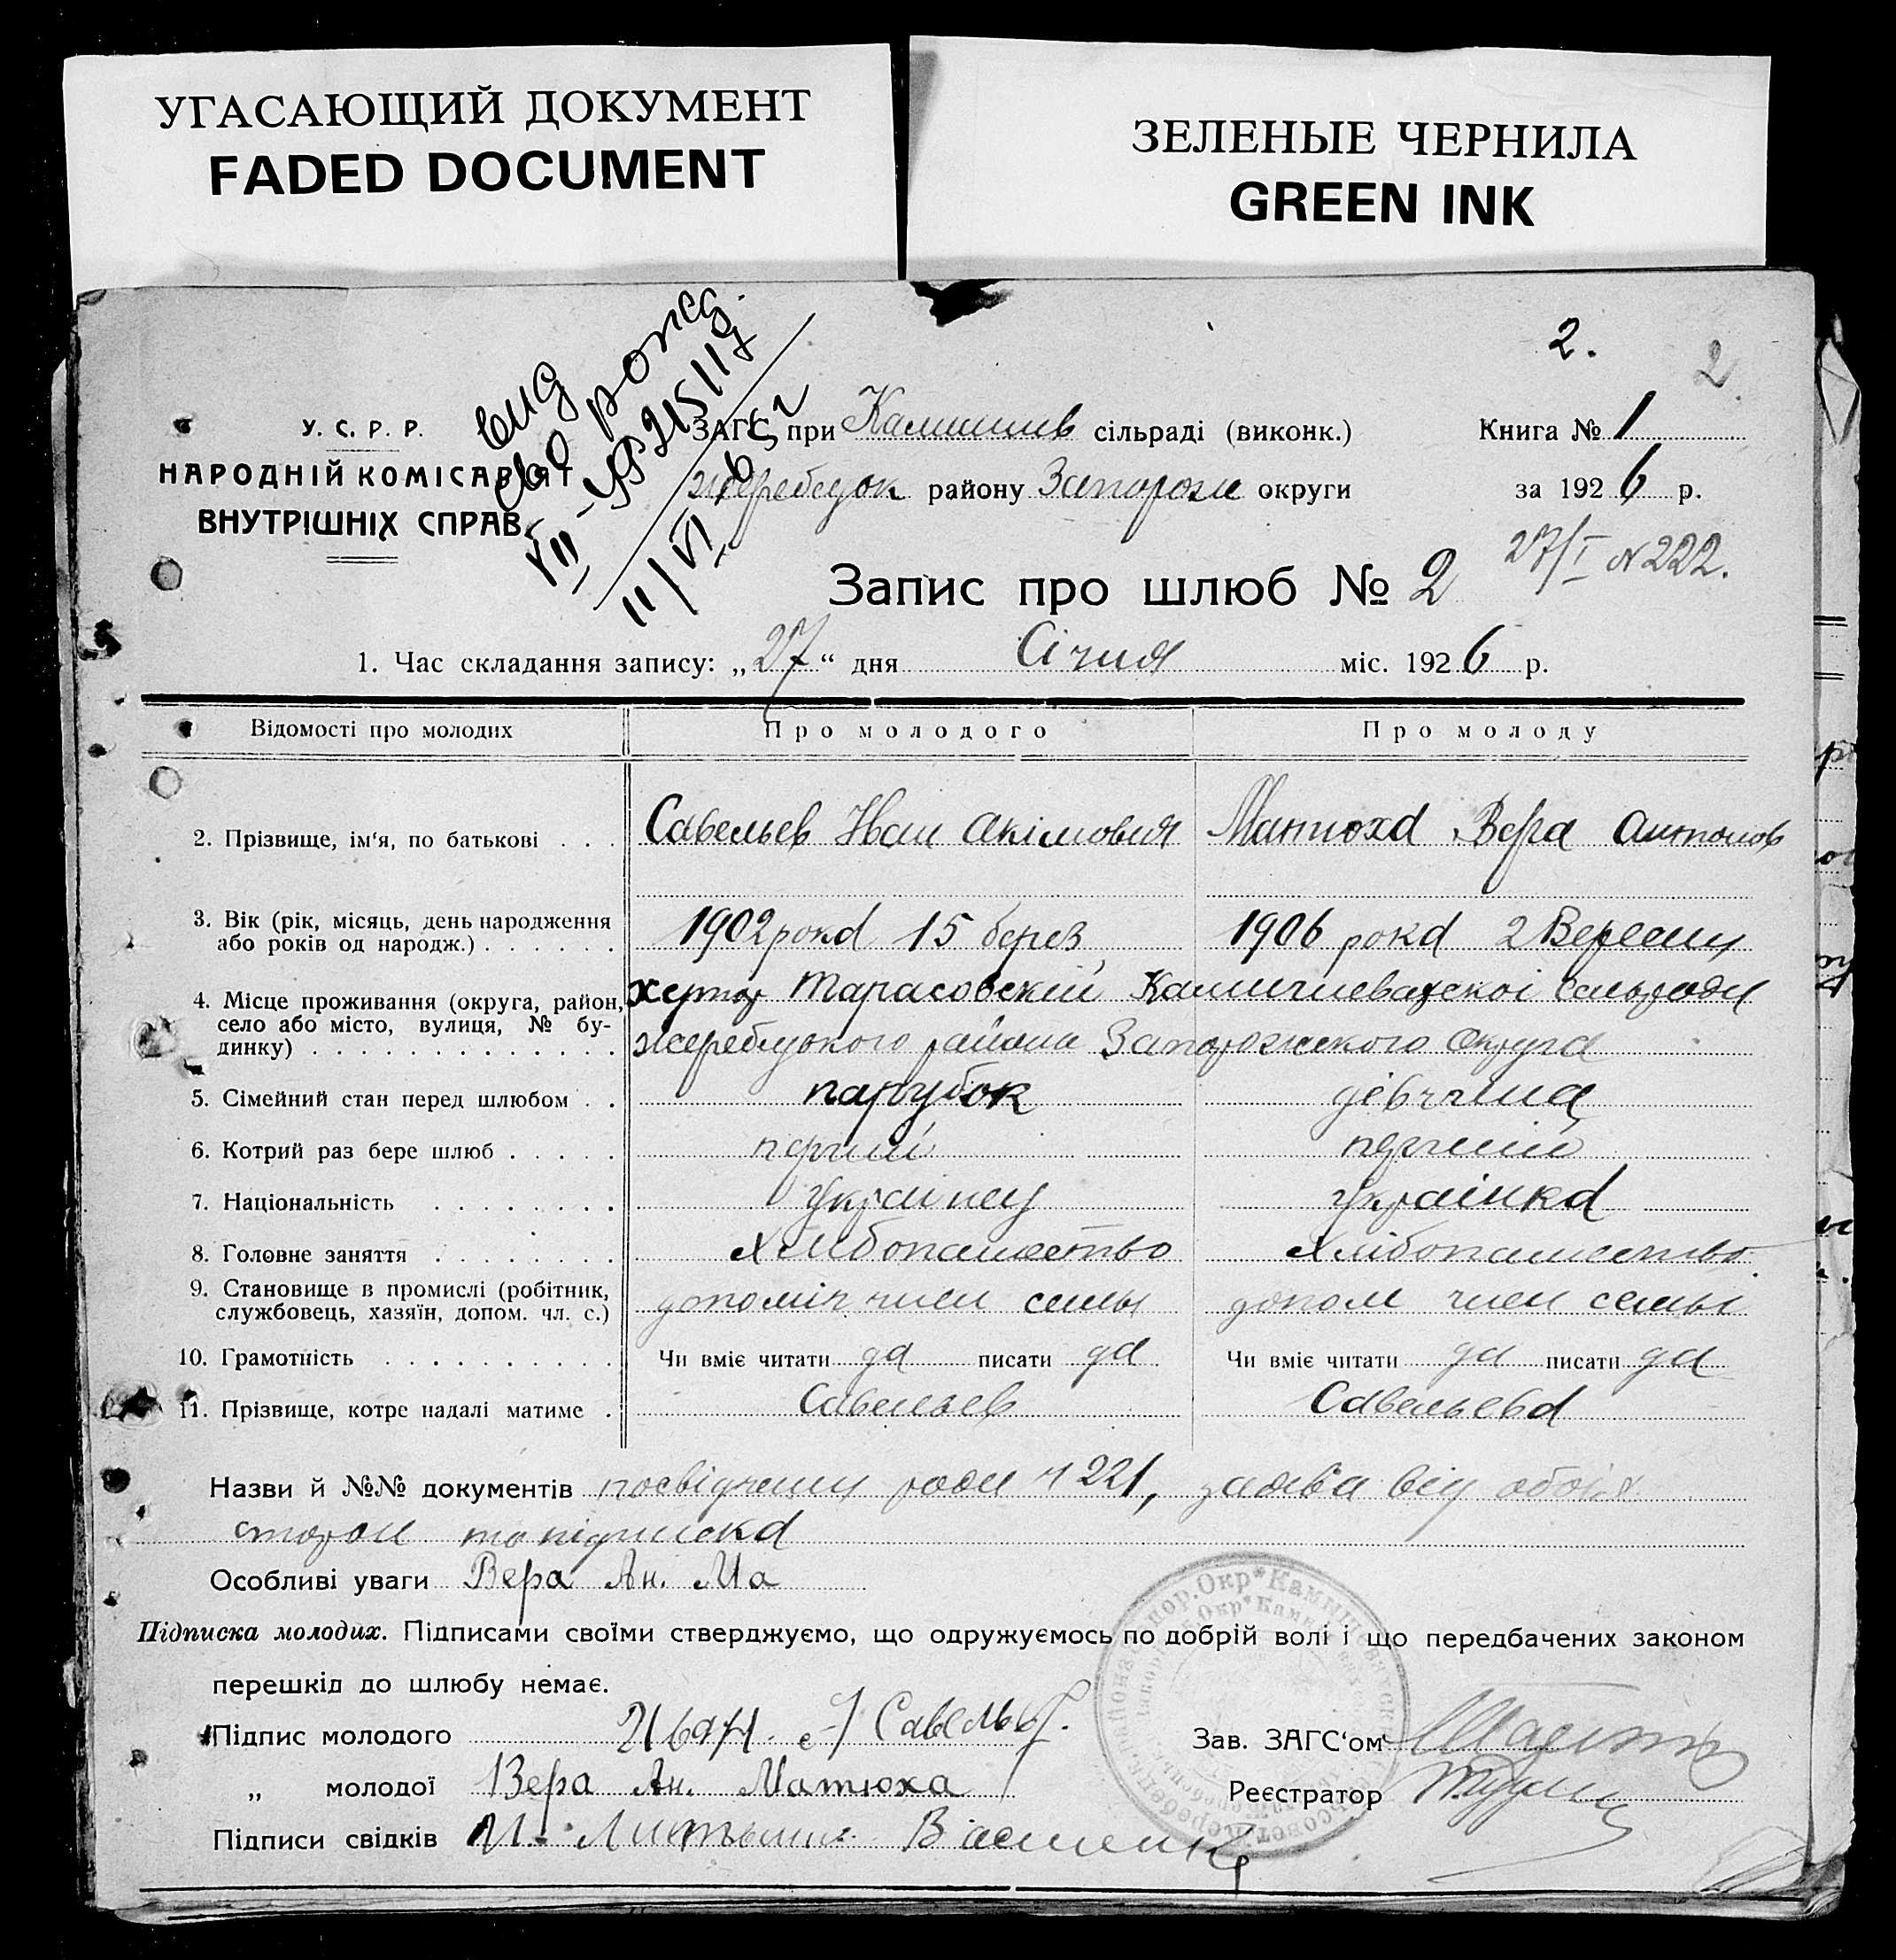 УГАСАЮЩИЙ ДОКУМЕНТ
FADED DOCUMENT
ЗЕЛЕНЫЕ ЧЕРНИЛА
GREEN INK
2.
2
вид
VII-УР 215112
11/VI
У. С. Р. Р.
НАРОДНІЙ КОМІСАРІЯТ
ВНУТРІШНІХ СПРАВ
ЗАГС при Камишив сільраді (виконк.)
Жеребецк району Запорож округи
Книга № 1
за 1926 р.
27/I N 222.
Запис про шлюб № 2
1. Час складання запису: „27“ дня Січня міс. 1926 р.
Відомості про молодих Про молодого Про молоду
2. Прізвище, ім‘я, по батькові . . . Савельев Иван Акімовия Матюха Вера Антонов
3. Вік (рік, місяць, день народження
або років од народж.) . . . . . . 1902 рока 15 берез 1906 рока 2 Вересни
4. Місце проживання (округа, район, хутор Тарасовский Камишеватскоі сельради
село або місто, вулиця, № бу-
динку) . . . . . . . . . . . . . Жеребецкого района Запорожского Округа
5. Сімейний стан перед шлюбом . . парубок дівчина
6. Котрий раз бере шлюб . . . . . перший перший
7. Національність . . . . . . . . українец українка
8. Головне заняття . . . . . . . . хлібопашество хлібопашество
9. Становище в промислі (робітник,
службовець, хазяїн, допом. чл. с.) допоміг член семьи допом член семьи
10. Грамотність . . . . . . . . . . Чи вміє читати да писати да Чи вміє читати да писати да
11. Прізвище, котре надалі матиме . Савельев Савельева
Назви й №№ документів посвідчени ради N 221, заява від обоіх
сторон та підписка
Особливі уваги Вера Ан. Ма
Підписка молодих. Підписами своїми стверджуємо, що одружуємось по добрій волі і що передбачених законом
перешкід до шлюбу немає.
Підпис молодого Иван А Савельев.
„ молодої Вера Ан. Матюха
Підписи свідків
Зав. ЗАГС‘ом
Реєстратор